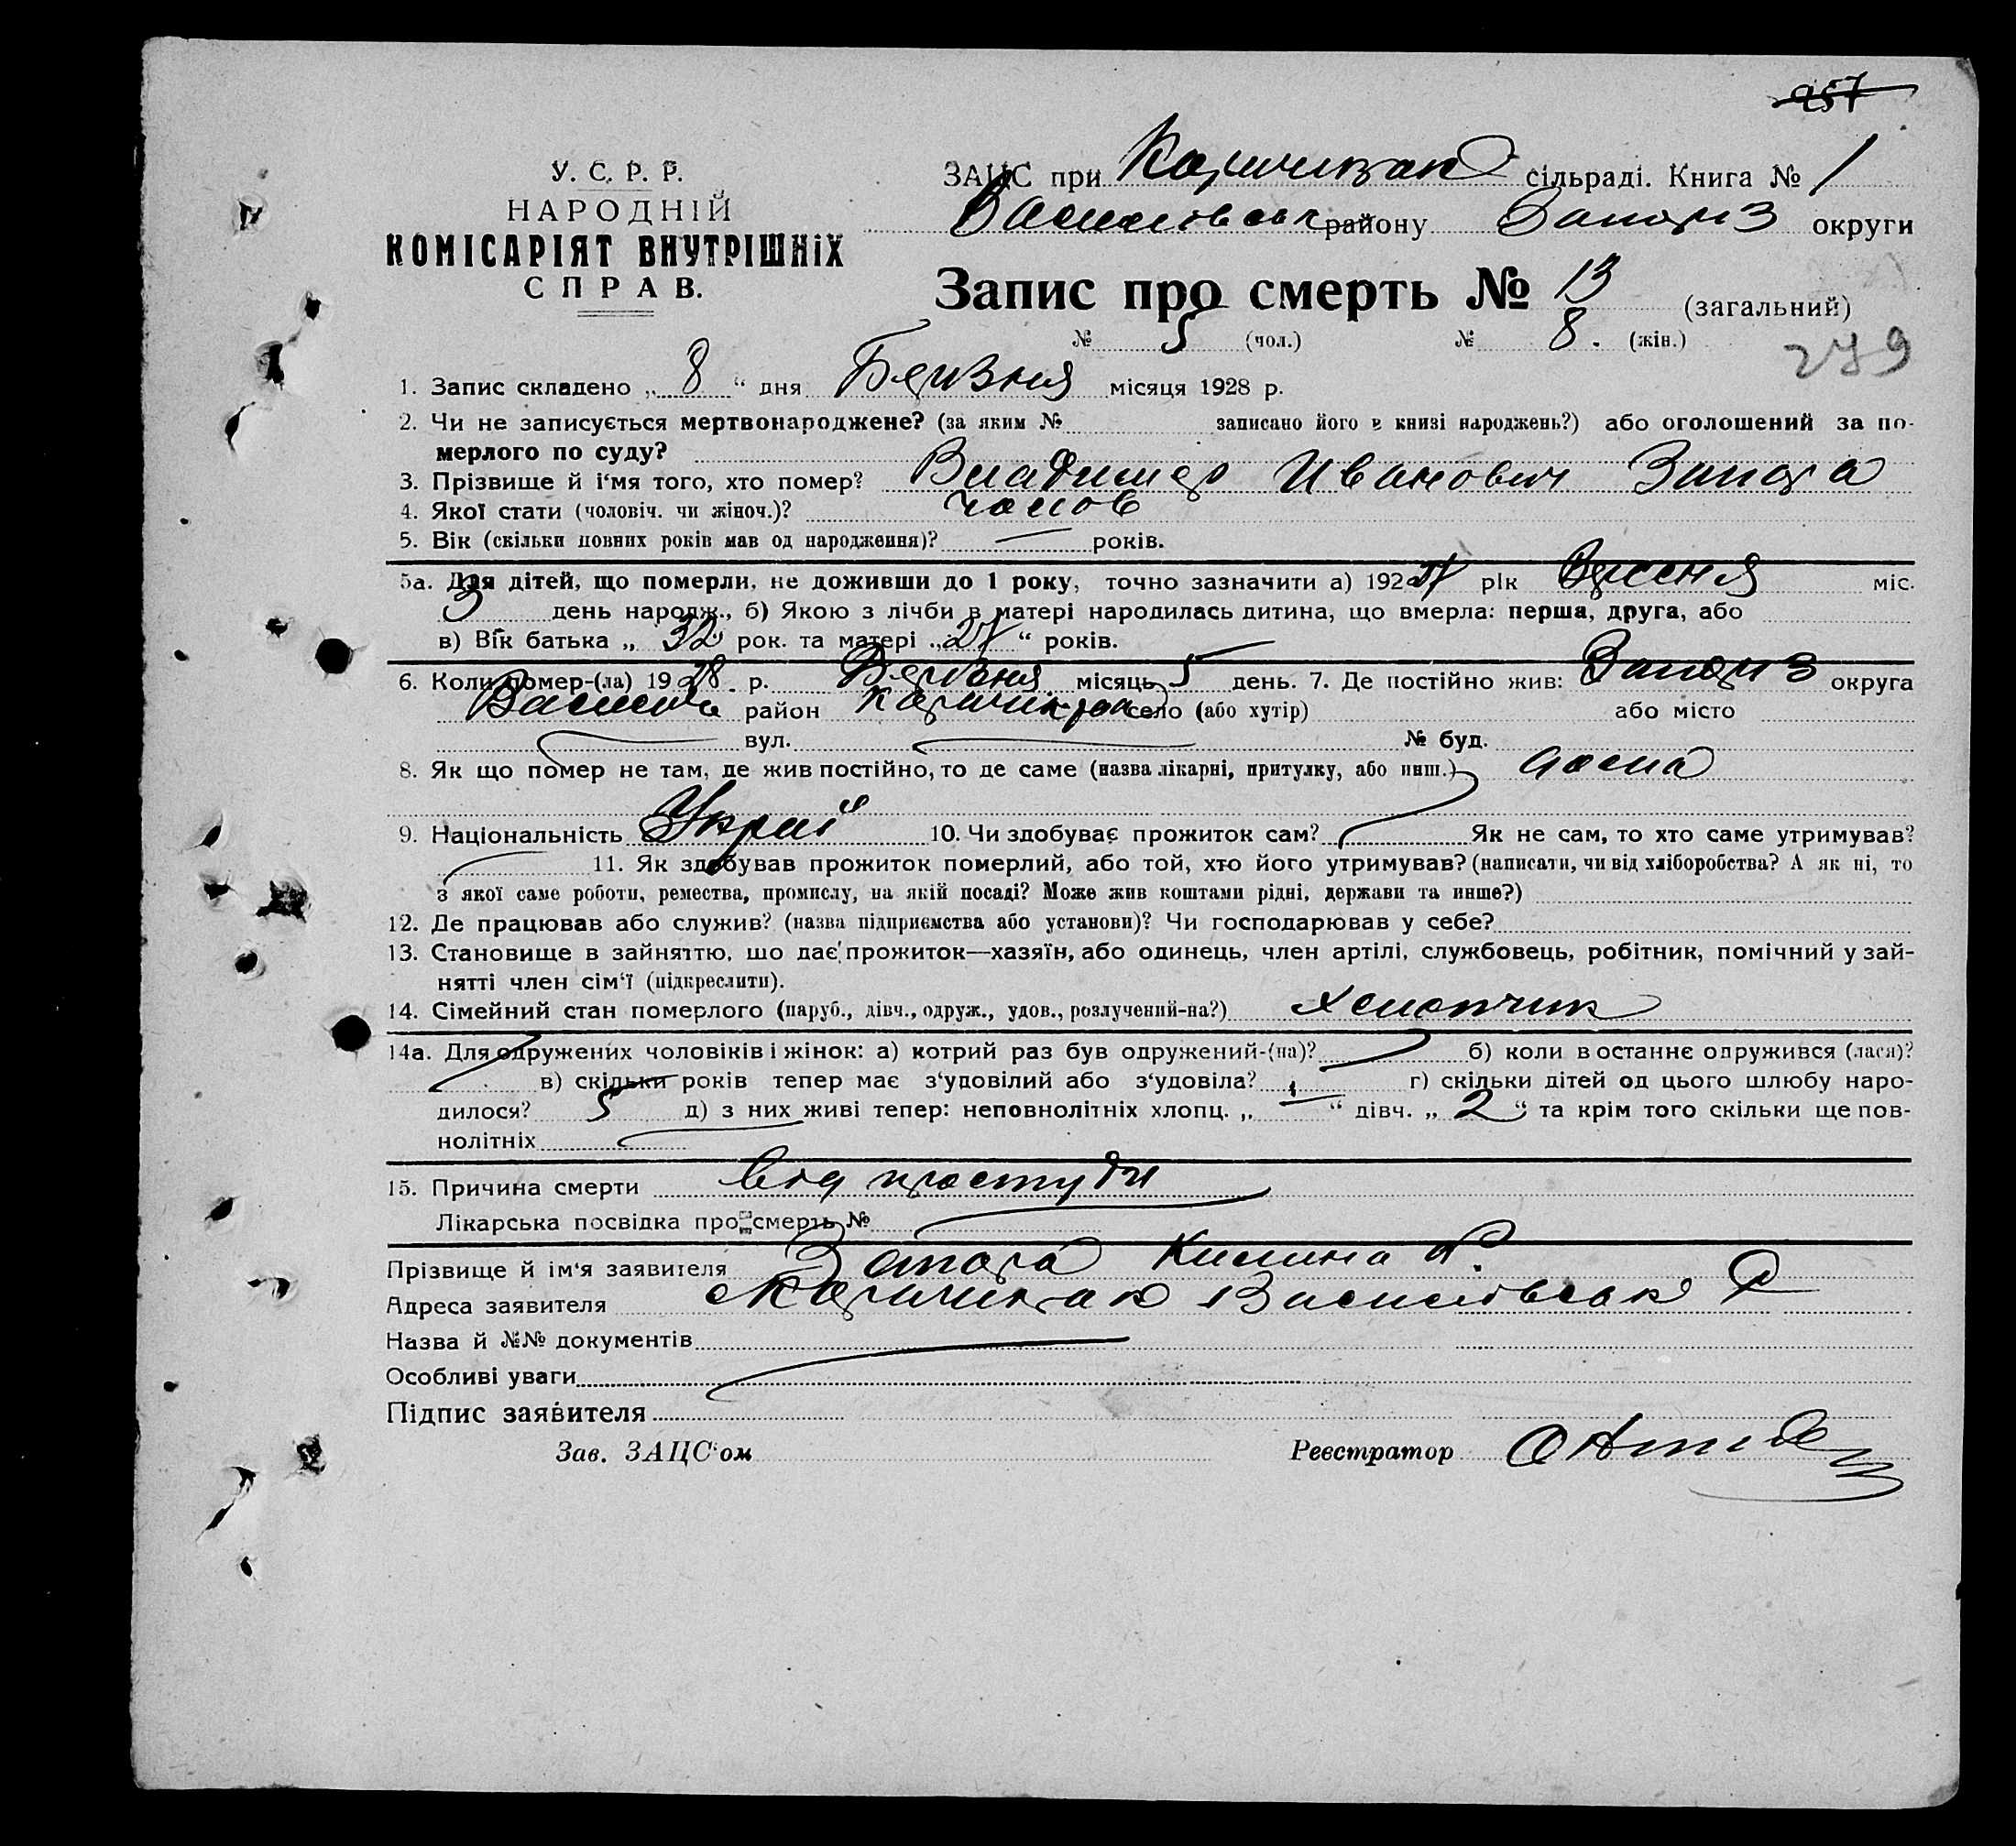 257
У. С. Р. Р.
НАРОДНІЙ
КОМІСАРІЯТ ВНУТРІШНІХ
СПРАВ.
ЗАЦС при сільраді. Книга № 1
Василівськ району Запоріз округи
Запис про смерть № 13 (загальний)
№ 5 (чол.) № 8. (жін.)
279
1. Запис складено „ 8 “ дня Березня місяця 1928 р.
2. Чи не записується мертвонароджене? (за яким № записано його в книзі народжень?) або оголошений за по-
мерлого по суду?
3. Прізвище й і‘мя того, хто помер? Владимер Иванович Запара
4. Якої стати (чоловіч. чи жіноч.)? чолов
5. Вік (скільки повних років мав од народження)? — років.
5а. Для дітей, що померли, не доживши до 1 року, точно зазначити а) 1927 рік Вресня міс.
3 день народж., б) Якою з лічби в матері народилась дитина, що вмерла: перша, друга, або
в) Вік батька „ 32 „ рок. та матері „ 27 “ років.
6. Коли помер-(ла) 1928 . р. Березня місяць 5 день. 7. Де постійно жив: Запоріз округа
Васили район село (або хутір) або місто
вул. № буд.
8. Як що помер не там, де жив постійно, то де саме (назва лікарні, притулку, або инш.) дома
9. Національність Украї 10. Чи здобуває прожиток сам? Як не сам, то хто саме утримував?
11. Як здобував прожиток померлий, або той, хто його утримував? (написати, чи від хліборобства? А як ні, то
з якої саме роботи, ремества, промислу, на якій посаді? Може жив коштами рідні, держави та инше?)
12. Де працював або служив? (назва підприємства або установи)? Чи господарював у себе?
13. Становище в зайняттю, що дає прожиток—хазяїн, або одинець, член артілі, службовець, робітник, помічний у зай-
нятті член сім‘ї (підкреслити).
14. Сімейний стан померлого (паруб., дівч., одруж., удов., розлучений-на?) хлопчик
14а. Для одружених чоловіків і жінок: а) котрий раз був одружений-(на)? б) коли востаннє одружився (лася)?
в) скільки років тепер має з‘удовілий або з‘удовіла? г) скільки дітей од цього шлюбу наро-
дилося? 5 д) з них живі тепер: неповнолітніх хлопц. „ — “ дівч. „ 2 “ та крім того скільки ще пов-
нолітніх
15. Причина смерти Від простуди
Лікарська посвідка про смерть №
Прізвище й ім‘я заявителя Запара Килина
Адреса заявителя Василівськ Р
Назва й №№ документів
Особливі уваги
Підпис заявителя
Зав. ЗАЦС‘ом Реєстратор